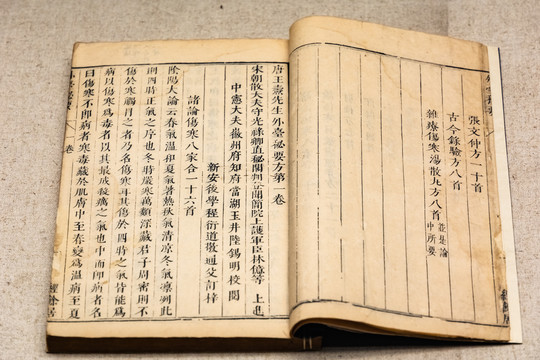 張文仲方一十首
古今錄驗方八首
雜療傷寒湯散丸方八首
並是論
中所要
唐王燾先生外臺秘要方第一卷
宋朝散大夫守光祿卿直秘閣判登聞簡院上護軍臣林億等 上進
中憲大夫徽州府知府當湖玉井陸錫明校閱
新安後學程衍道敬通父訂梓
諸論傷寒八家合一十六首
陰陽大論云春氣溫和夏氣暑熱秋氣清凉冬氣凛冽此
則四時正氣之序也冬時嚴寒萬類深藏君子周密則不
傷於寒觸冒之者乃名傷寒耳其傷於四時之氣皆能爲
病以傷寒爲毒者以其最成殺癘之氣也中而即病者名
曰傷寒不即病者寒毒藏於肌膚中至春變爲溫病至夏
卷一
經餘居